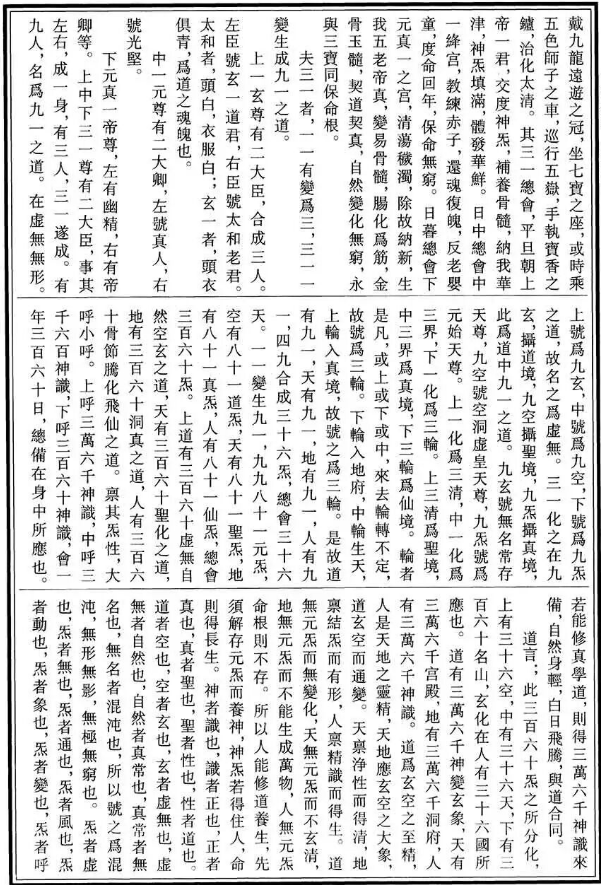 戴九龍遠遊之冠，坐七寶之座，或時乘
五色師子之車，巡行五嶽，手執寶香之
鑪，治化太清。其三一總會，平旦朝上
帝一君，交度神炁，補養骨髓，納我華
津，神炁填滿，體發華鮮。日中總會中
一絳宫，教練赤子，還魂復魄，反老嬰
童，度命回年，保命無窮。日暮總會下
元真一之宫，清蕩穢濁，除故納新，生
我五老帝真，變易骨髓，腸化爲筋，金
骨玉髓，契道契真，自然變化無窮，永
與三寶同保命根。
夫三一者，一一有變爲三，三一一
變生成九一之道。
上一玄尊有二大臣，合成三人。
左臣號玄一道君，右臣號太和老君。
太和者，頭白，衣服白；玄一者，頭衣
俱青，爲道之魂魄也。
中一元尊有二大卿，左號真人，右
號光堅。
下元真一帝尊，左有幽精，右有帝
卿等。上中下三一尊有二大臣，事其
左右，成一身，有三人，三一遂成。有
九人，名爲九一之道。在虛無無形。
上號爲九玄，中號爲九空，下號爲九炁
之道，故名之爲虛無。三一化之在九
玄，攝道境，九空攝聖境，九炁攝真境，
此爲道中九一之道。九玄號無名常存
天尊，九空號空洞虛皇天尊，九炁號爲
元始天尊。上一化爲三清，中一化爲
三界，下一化爲三輪。上三清爲聖境，
中三界爲真境，下三輪爲仙境。輪者
是凡，或上或下或中，來去輪轉不定，
故號爲三輪。下輪入地府，中輪生天，
上輪入真境，故號之爲三輪。是故道
有九一，天有九一，地有九一，人有九
一，四九合成三十六炁，總會三十六
天。一一變生九一，九九八十一元炁，
空有八十一道炁，天有八十一聖炁，地
有八十一真炁，人有八十一仙炁，總會
三百六十炁。上道有三百六十虛無自
然空玄之道，天有三百六十聖化之道，
地有三百六十洞真之道，人有三百六
十骨節騰化飛仙之道。禀其炁性，大
呼小呼。上呼三萬六千神識，中呼三
千六百神識，下呼三百六十神識，會一
年三百六十日，總備在身中所應也。
若能修真學道，則得三萬六千神識來
備，自然身輕，白日飛騰，與道合同。
道言：此三百六十炁之所分化，
上有三十六空，中有三十六天，下有三
百六十名山，玄化在人有三十六國所
應也。道有三萬六千神變玄象，天有
三萬六千宫殿，地有三萬六千洞府，人
有三萬六千神識。道爲玄空之至精，
人是天地之靈精，天地應玄空之大象，
道玄空而通變。天禀净性而得清，地
禀結炁而有形，人禀精識而得生。道
無元炁而無變化，天無元炁而不玄清，
地無元炁而不能生成萬物，人無元炁
命根則不存。所以人能修道養生，先
須解存元炁而養神，神炁若得住人，命
則得長生。神者識也，識者正也，正者
真也，真者聖也，聖者性也，性者道也。
道者空也，空者玄也，玄者虛無也，虛
無者自然也，自然者真常也，真常者無
名也，無名者混沌也，所以號之爲混
沌，無形無影，無極無窮也。炁者虛
也，炁者無也，炁者通也，炁者風也，炁
者動也，炁者象也，炁者變也，炁者呼